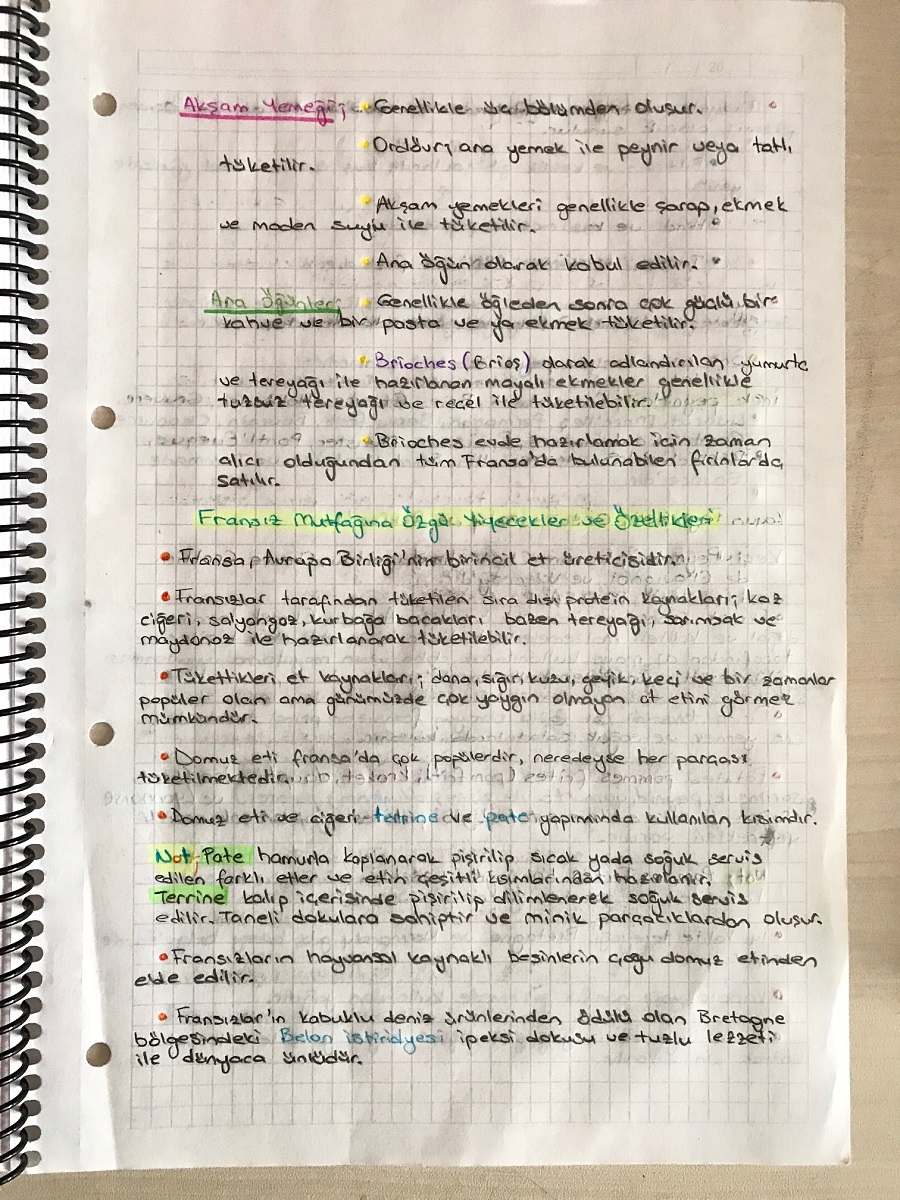 Akşam Yemeği; Genellikle üç bölümden oluşur.
Ordövr; ana yemek ile peynir veya tatlı
tüketilir.
Akşam yemekleri genellikle şarap, ekmek
ve maden suyu ile tüketilir.
Ana öğün olarak kabul edilir.
Ara Öğünler; Genellikle öğleden sonra çok güçlü bir
kahve ve bir pasta ve ya ekmek tüketilir.
Brioches (Brioş) olarak adlandırılan yumurta
ve tereyağı ile hazırlanan mayalı ekmekler genellikle
tuzsuz tereyağı ve reçel ile tüketilebilir.
Brioches evde hazırlamak için zaman
alıcı olduğundan tüm Fransa'da bulunabilen fırınlarda
satılır.
Fransız Mutfağına Özgü Yiyecekler ve Özellikleri
Fransa, Avrupa Birliği'nin birincil et üreticisidir.
Fransızlar tarafından tüketilen sıra dışı protein kaynakları; kaz
ciğeri, salyangoz, kurbağa bacakları bazen tereyağı, sarımsak ve
maydonoz ile hazırlanarak tüketilebilir.
Tükettikleri et kaynakları; dana, sığır, kuzu, geyik, keçi ve bir zamanlar
popüler olan ama günümüzde çok yaygın olmayan at etini görmek
mümkündür.
Domuz eti fransa'da çok popülerdir, neredeyse her parçası
tüketilmektedir.
Domuz eti ve ciğeri terrine ve pate yapımında kullanılan kısımdır.
Not; Pate hamurla kaplanarak pişirilip sıcak yada soğuk servis
edilen farklı etler ve etin çeşitli kısımlarından hazırlanır.
Terrine kalıp içerisinde pişirilip dilimlenerek soğuk servis
edilir. Taneli dokulara sahiptir ve minik parçacıklardan oluşur.
Fransızların hayvansal kaynaklı besinlerin çoğu domuz etinden
elde edilir.
Fransızlar'ın kabuklu deniz ürünlerinden ödülü olan Bretagne
bölgesindeki Belon istiridyesi ipeksi dokusu ve tuzlu lezzeti
ile dünyaca ünlüdür.